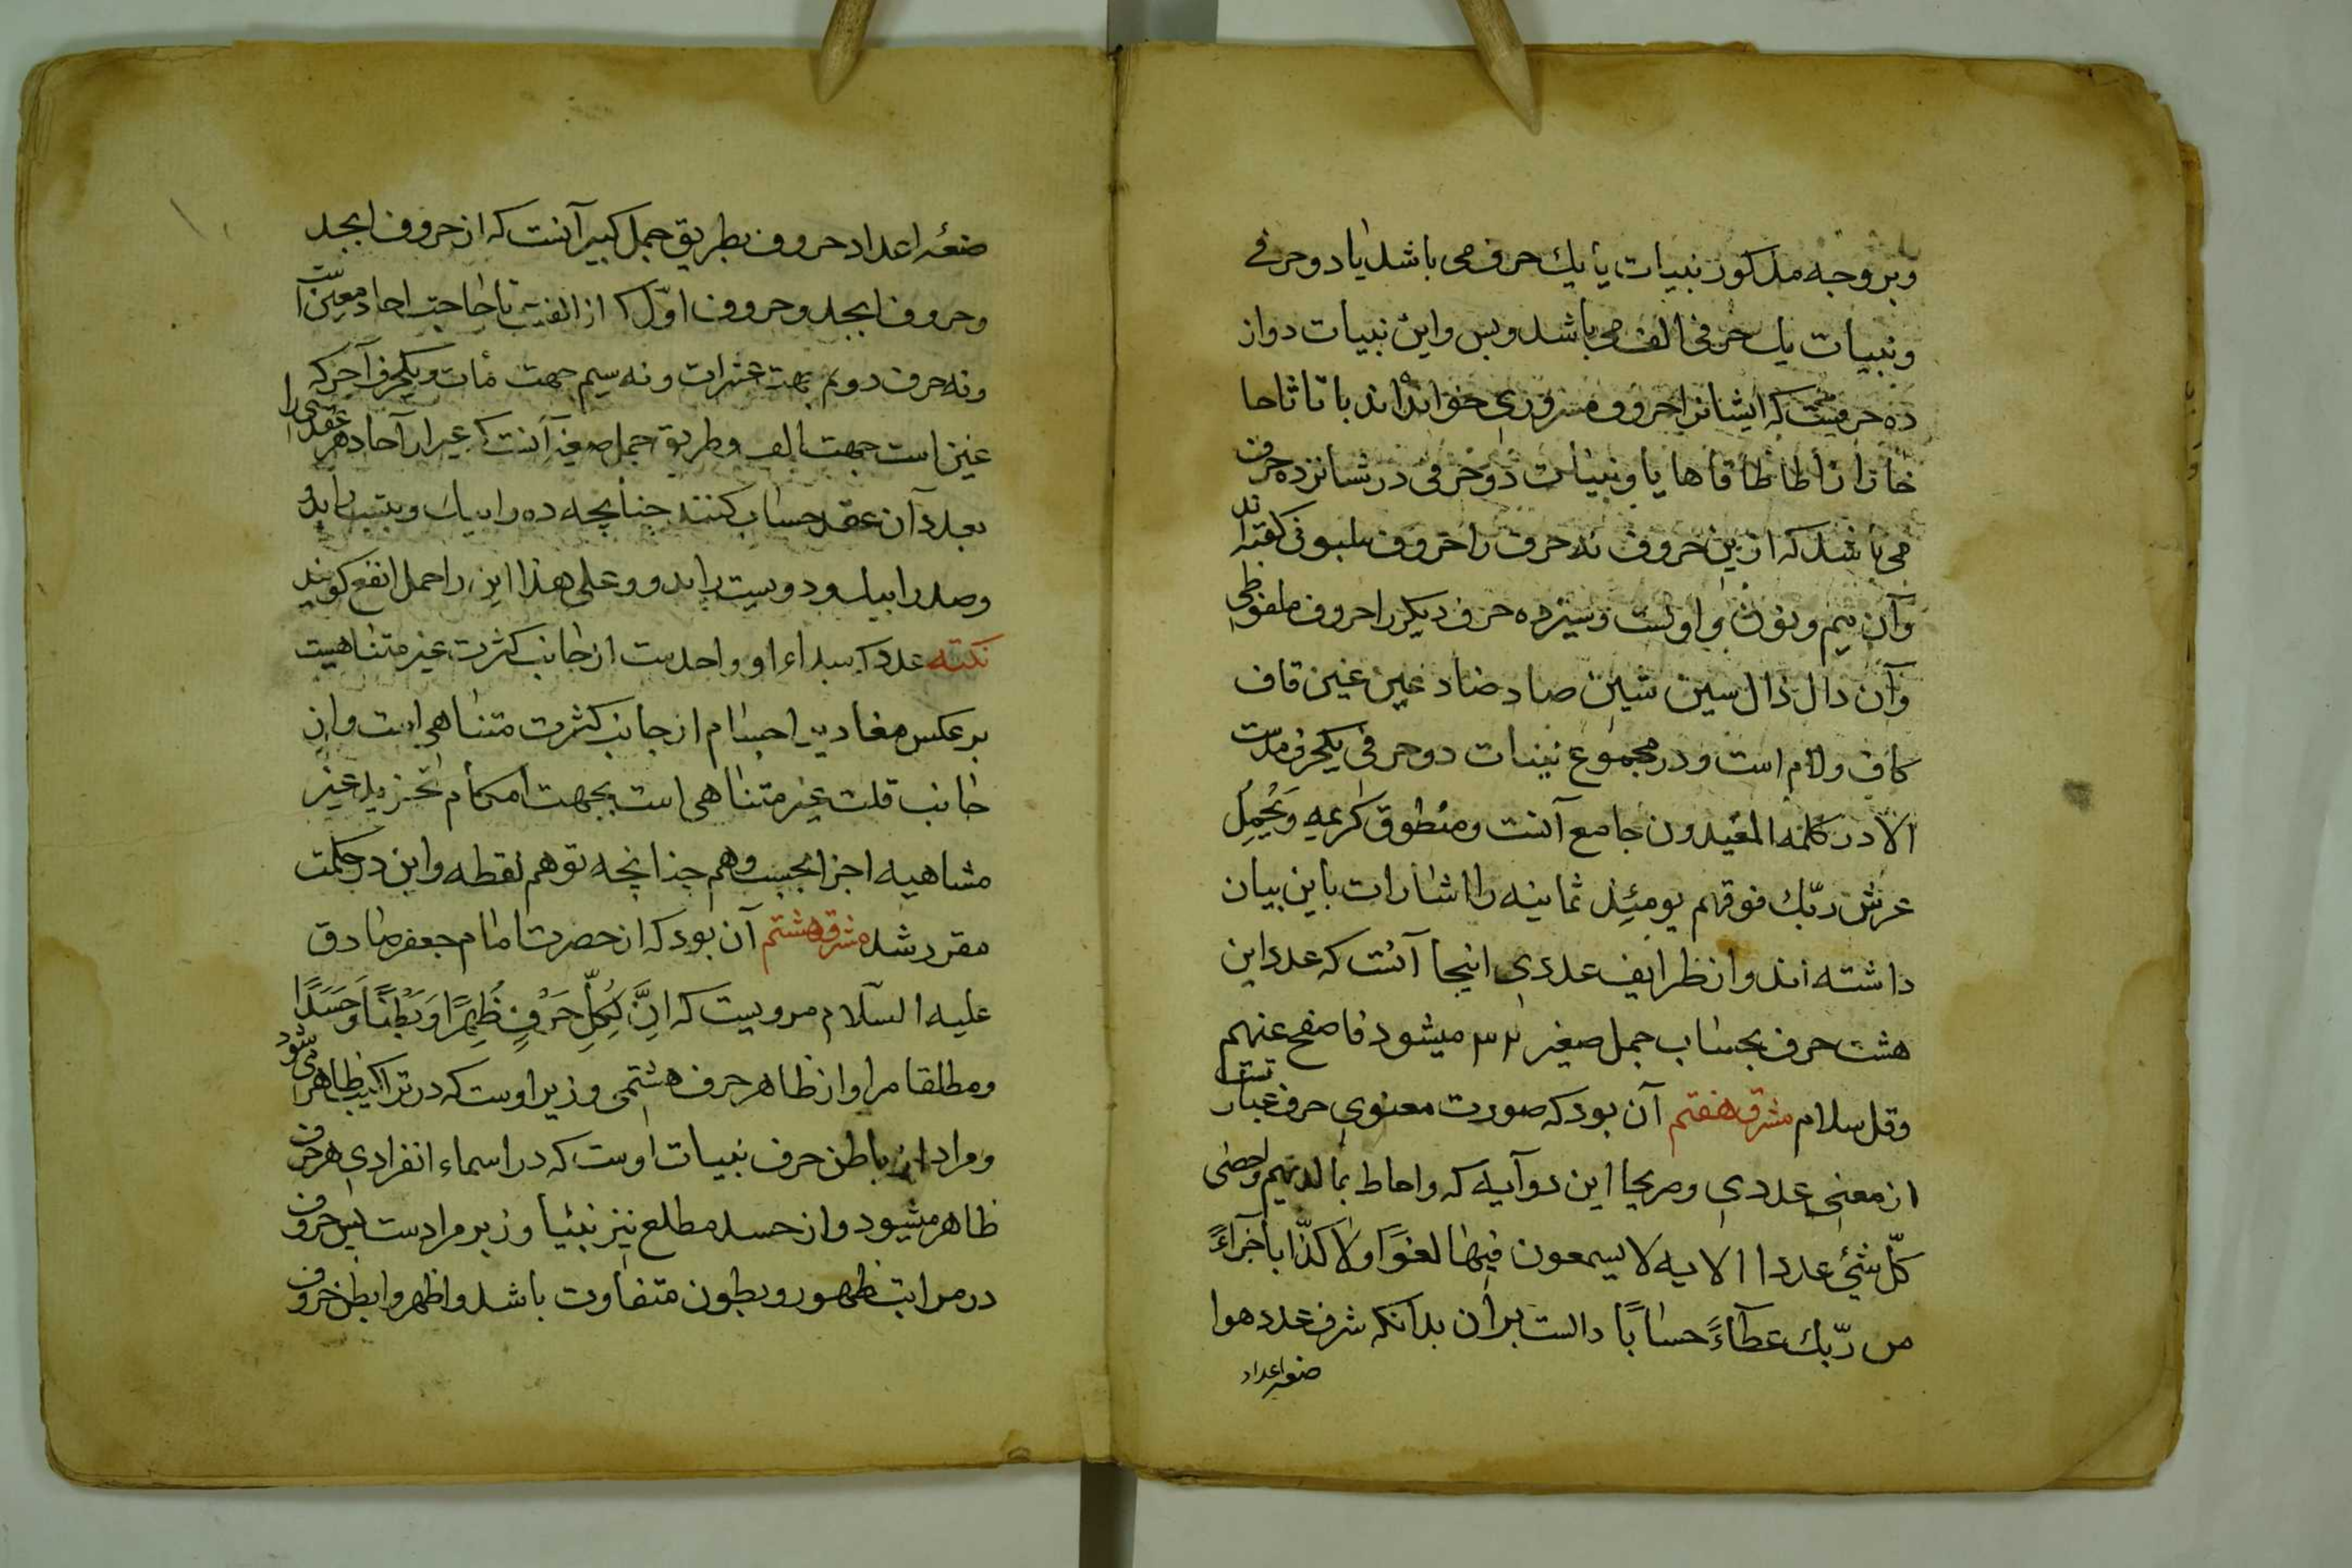 وبر وجه مذکور نبیات یا یك حرف می باشد یا دو حرفی
ونبیات یك حرفی الف می باشد وبس واین نبیات دواز
ده حرفیست که ایشانرا حروف مسروری خوانده اند با تا ثا حا
خا را زا طا ظا فا ها یا ونبیات دو حرفی در شانزده حرف
می باشد که ازین حروف سه حرف را حروف ملبوبی کفته اند
وآن میم ونون واوست وسیزده حرف دیکر را حروف ملفوظی
وآن دال ذال سین شین صاد ضاد عین غین قاف
کاف ولام است ودر مجموع نبیات دو حرفی یکحرف مدست
الا در کلمه المفیدون جامع آنست ومنطوق کریمه وَیَحْمِلُ
عرش ربّك فوقهم یومئِذ ثمانیه را اشارات باین بیان
داشته اند واز ظرایف عددی اینجا آنست که عدد این
هشت حرف بحساب جمل صغیر ۳۲ میشود فاصفح عنهم
وقل سلام مشرق هفتم آن بود که صورت معنوی حرف عبارتست
از معنی عددی ومریحا این دو آیه که واحاط بما لدیهم واحصی
کلّ شئ عددا الایه لا یسمعون فیها لغوًا ولا کذّابا جزآءً
من ربّك عطآءً حسابًا دالست بران بدانکه شرف عدد هوا
ضعه اعداد
ضعه اعداد حروف بطریق جمل کبیر آنست که از حروف ابجد
وحروف ابجد وحروف اوّل که از الفیت تا طا جهت احاد معین است
ونه حرف دویم بهت عشرات ونه سیم جهت مأت ویکحرف آخر که
غین است جهت الف وطریق جمل صغیر آنست که غیر از آحاد هر عقدی را
بعدد آن عقد حساب کنند چنانچه ده را بیك وبیست را بدو
وصد را بیك ودویست را بدو وعلی هذا این را جمل انفع کویند
نکته عدد که مبداء او واحدست از جانب کثرت غیر متناهیست
بر عکس مقادیر اجسام از جانب کثرت متناهی است واز
جانب قلت غیر متناهی است بجهت امکام تجزیه غیر
متناهیه اجزا بحسب وهم چنانچه توهم نقطه واین در حکمت
مقرر شد مشرق هشتم آن بود که از حضرت امام جعفر صادق
علیه السّلام مرویست که اِنَّ لِکُلِّ حَرْفٍ ظَهرًا وَبَطْنًا وَحَسَدًا
ومطلقا مراو از ظاهر حرف هشتمی وزبر اوست که در تراکیب ظاهر می شود
ومراد از باطن حرف نبیات اوست که در اسماء انفرادی هر حرف
ظاهر میشود واز حسد مطلع نیز نبیا وزبر مرادست پس حروف
در مراتب ظهور وبطون متفاوت باشد واظهر وابطن حروف